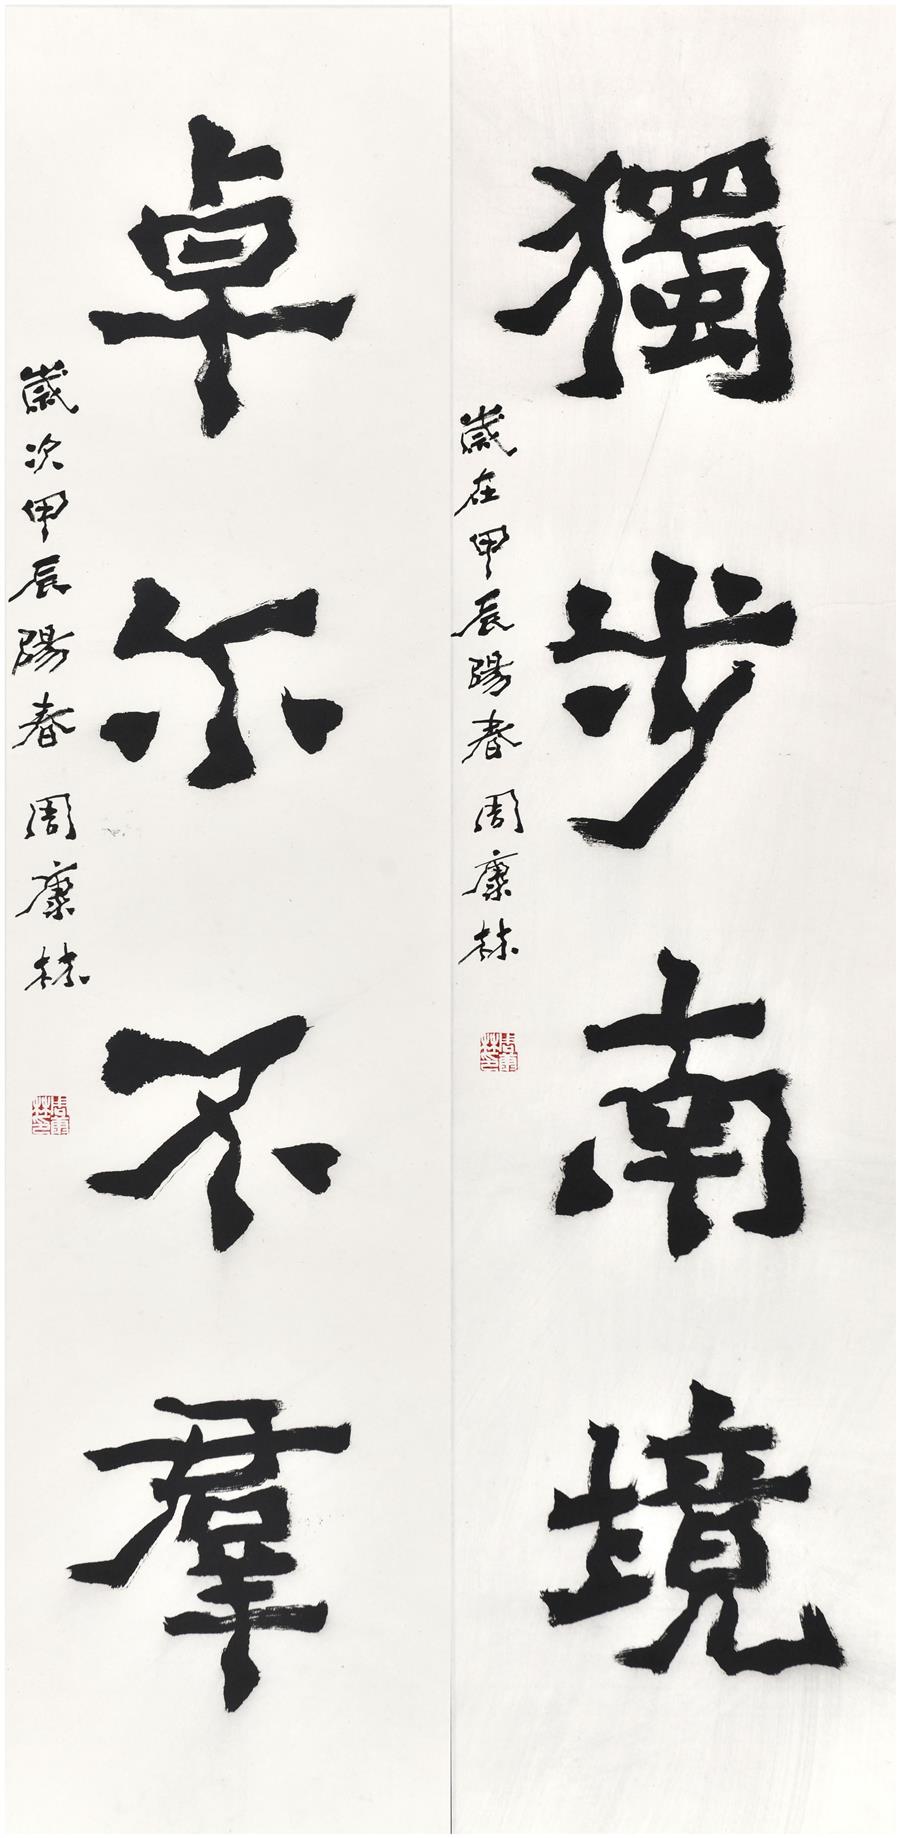 獨步南境
歲在甲辰陽春 周康林
卓尔不羣
歲次甲辰陽春 周康林